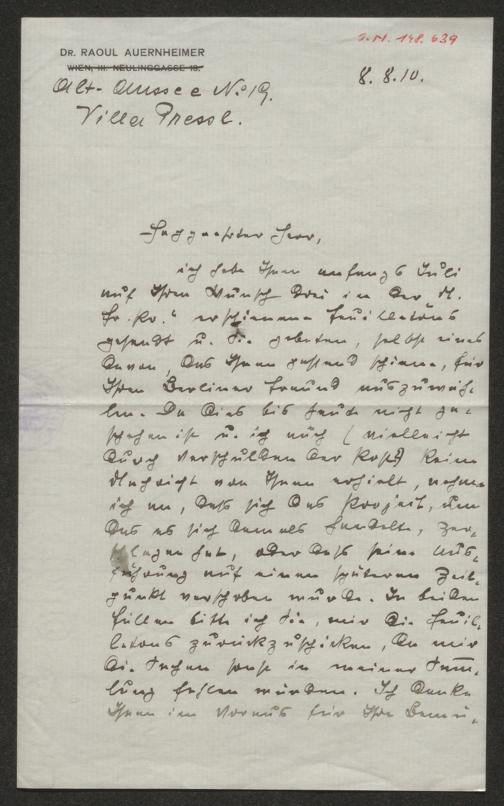 J.N. 148.639
DR. RAOUL AUERNHEIMER
WIEN, III. NEULINGGASSE 18.
8. 8. 10.
Alt-Aussee No 19.
Villa Pressl.
Hochgeehrter Herr,
ich habe Ihnen anfangs Juli
auf Ihren Wunsch drei in der „N.
Fr. Pr." erschienene Feuilletons
gesandt u. Sie gebeten, selbst eines
davon, das Ihnen passend schiene, für
Ihren Berliner Freund auszuwäh-
len. Da dies bis heute nicht ge-
schehen ist u. ich auch (vielleicht
durch Verschulden der Post) keine
Nachricht von Ihnen erhielt, nehme
ich an, daß sich das Projekt, um
das es sich damals handelte, zer-
schlagen hat, oder daß seine Aus-
führung auf einen späteren Zeit-
punkt verschoben wurde. In beiden
Fällen bitte ich Sie, mir die Feuil-
letons zurückzuschicken, da mir
die Sachen sonst in meiner Samm-
lung fehlen würden. Ich danke
Ihnen im Voraus für Ihre Bemü-